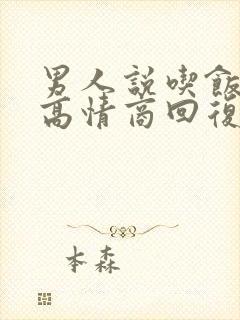 男人説喫飯
高情商回復
本森